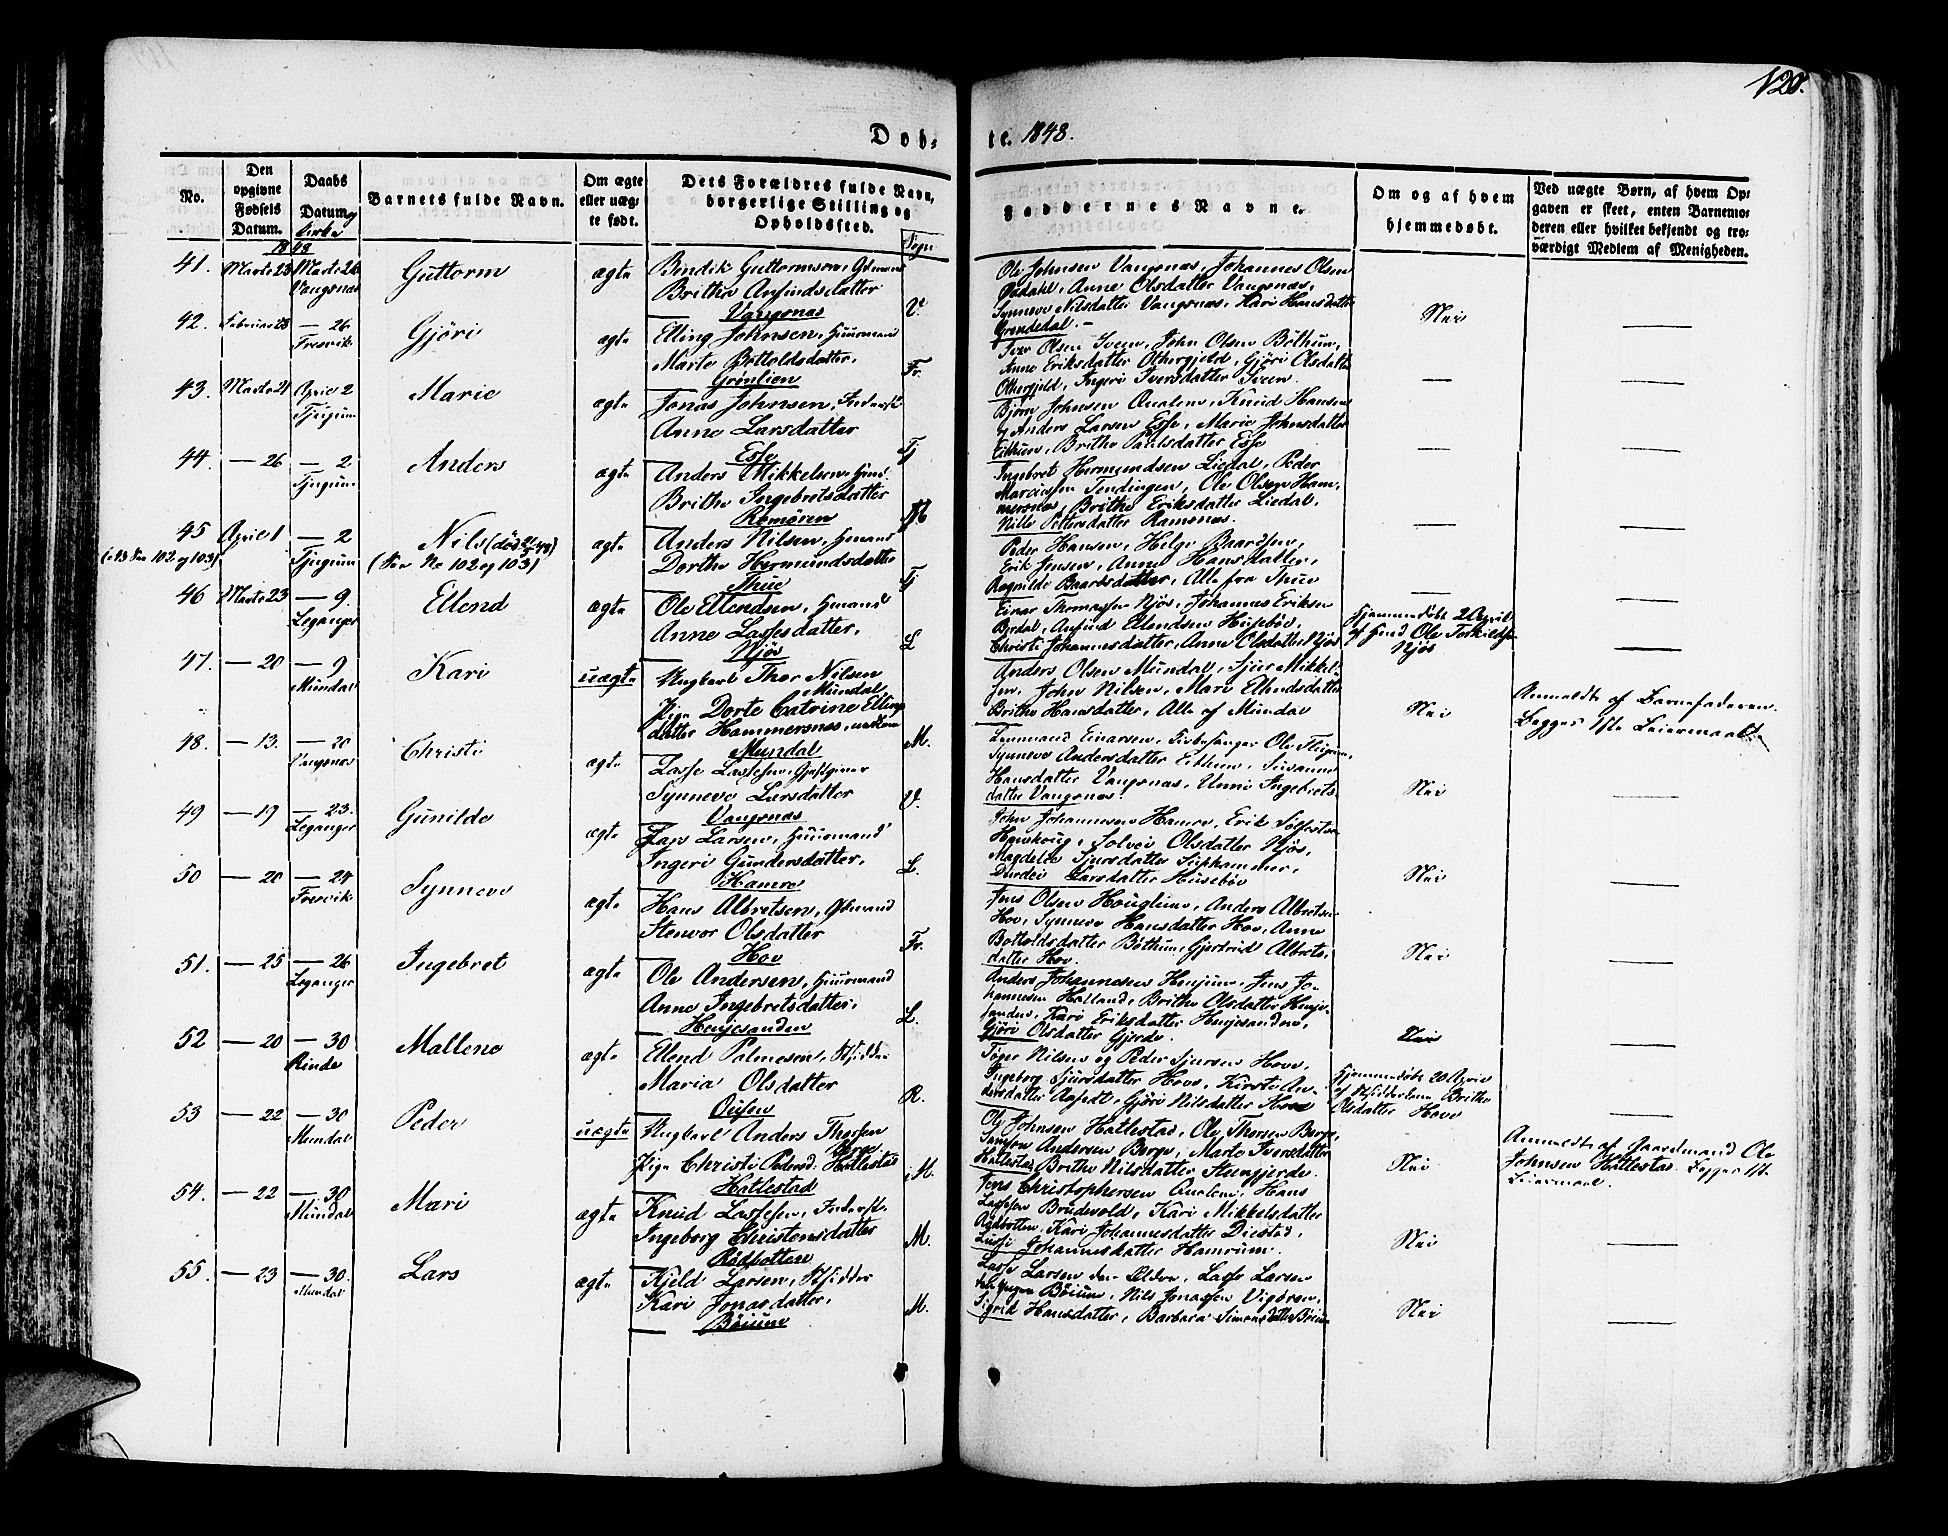 128.
Døb- te. 1848.
No.
Den opgivne Fødsels Datum.
Daabs Datum og Kirke
Barnets fulde Navn.
Om ægte eller uægte født.
Dets Forældres fulde Navn, borgerlige Stilling og Opholdssted.
Sogn
Faddernes Navne.
Om og af hvem hjemmedøbt.
Ved uægte Børn, af hvem Opgaven er skeet, enten Barnemoderen eller hvilket bekjendt og troværdigt Medlem af Menigheden.
1848
41. Marts 23 Marts 26 Vangsnæs Guttorm ægte
Bendik Guttormsen, Gdmand
Britha Anfindsdatter
Vangsnæs V.
Ole Johnsen Vangsnæs, Johannes Olsen
Opdahl, Anne Olsdatter Vangsnæs,
Synneve Nilsdatter Vangsnæs, Kari Hansdatter
Grøndedal. Nei
42. Februar 28 — 26 Fresvik Gjöri ægte
Elling Johnsen, Huusmand
Marte Botholdsdatter,
Grönlien Fr.
Iver Olsen Sveen, John Olsen Böthun,
Anne Eriksdatter Othergjeld, Gjöri Olsdatter
Othergjeld, Ingeri Iversdatter Sveen. —
43. Marts 21 April 2 Tjugum Marie ægte
Jonas Johnsen, Inderst
Anne Larsdatter
Esse Tj
Björn Johnsen Qualem, Knud Hansen
og Anders Larsen Esse, Marie Johnsdatter
Eithun, Britha Paulsdatter Esse —
44. — 26 — 2 Tjugum Anders ægte
Anders Mikkelsen, Huusm.
Britha Ingebretsdatter
Romören
Ingebret Hermundsen Liedal, Peder
Marcussen Tendingen, Ole Olsen Ham-
mersnæs, Britha Eriksdatter Liedal,
Nille Pettersdatter Ramsnæs. —
45 April 1 — 2 Tjugum Nils (död 21/5 48) ægte
(See No 102 og 103)
(See No 102 og 103)
Anders Nilsen, Huusmand
Dorthe Hermundsdatter
Thue Tj
Peder Hansen, Helge Baardsen,
Erik Jensen, Anne Hansdatter,
Ragnilde Baardsdatter, Alle fra Thue —
46 Marts 23 — 9. Leganger Ellend ægte
Ole Ellendsen, Huusmand
Anne Lassesdatter,
Njös L
Einar Thomassen Njös, Johannes Eriksen
Bødal, Anfind Ellendsen Husebøe,
Christi Johannesdatter, Anne Olsdatter Njös
Hjemmedøbt 2 April
af Huusmd Ole Torkildsen
Njös
47. — 20 — 9 Mundal Kari uægte
Ungkarl Thor Nilsen
Mundal
Pige Dorte Catrine Elling
datter Hammersnæs,
Mundal M.
Anders Olsen Mundal, Sjur Mikkel-
sen, John Nilsen, Mari Ellendsdatter
Britha Hansdatter, Alle af Mundal
Nei
Anmeldt af Barnefaderen.
Begges 1ste Leiermaal.
48. — 13. — 20 Vangsnæs Christi ægte
Lasse Lassesen, Gjestgiver
Synneve Larsdatter
Vangsnæs V.
Enmand Einarsen, Kirkesanger Ole
Synneve Andersdatter Eithun, Susanne
Hansdatter Vangsnæs, Unni Ingebrets-
datter Vangsnæs. Nei
49 — 19 — 23. Leganger Gunilde ægte
Lars Larsen, Huusmand
Ingeri Gundersdatter,
Hamre L.
John Johannesen Hamre, Erik Solfestsen
Henjehoug, Solvei Olsdatter Njös,
Magdele Sjursdatter Suphammer,
Durdei Larsdatter Husebøe Nei
50 — 20 — 24 Fresvik Synneve ægte
Hans Albretsen, Gdmand
Stenvor Olsdatter
Hov Fr.
Jens Olsen Houglum, Anders Albretsen
Hov, Synneve Hansdatter Hov, Anne
Botholdsdatter Böthun, Gjertrud Albrets-
datter Hov. Nei
51. — 25 — 26 Leganger Ingebret ægte
Ole Andersen, Huusmand
Anne Ingebretsdatter,
Henjesanden L.
Anders Johannesen Henjum, Jens Jo-
hannesen Holland, Britha Olsdatter Henje-
sanden, Kari Eriksdatter Henjesanden,
Gjöri Olsdatter Gjerde. Nei
52 — 20 — 30 Rinde Mallene ægte
Ellend Palmesen, Selvsidder
Maria Olsdatter
Ousen R.
Töger Nilsen og Peder Sjursen Hove,
Ingeborg Sjursdatter Hove, Kirsti An-
dersdatter Aafedt, Gjöri Nilsdatter Hove
Hjemmedøbt 20 April
af Britha
Olsdatter Hove
53 — 22 — 30 Mundal Peder uægte
Ungkarl Anders Thorsen
Berge
Pige Christi Pedersd. Hatlestad
Hatlestad M.
Ole Johnsen Hatlestad, Ole Thorsen Berge,
Samson Andersen Berge, Marte Iversdatter
Hatlestad, Britha Nilsdatter Steengjerde.
Nei
Anmeldt af Gaardmand Ole
Johnsen Hatlestad. Begges 1ste
Leiermaal.
54. — 22 — 30 Mundal Mari ægte
Knud Lassesen, Inderst.
Ingeborg Christensdatter
Rødbotten M.
Jens Christophersen Qualem, Hans
Lassesen Brudevold, Kari Mikkelsdatter
Rødbotten, Kari Johannesdatter Diestad,
Lussi Johannesdatter Hamrum. Nei
55. — 23 — 30. Mundal Lars ægte
Kjeld Larsen, Selvsidder
Kari Jonasdatter,
Böium M.
Lasse Larsen den Eldre, Lasse Larsen
den Yngre Böium, Nils Jonassen Vigören,
Sigrid Hansdatter, Barbara Simonsdatter Böium
Nei